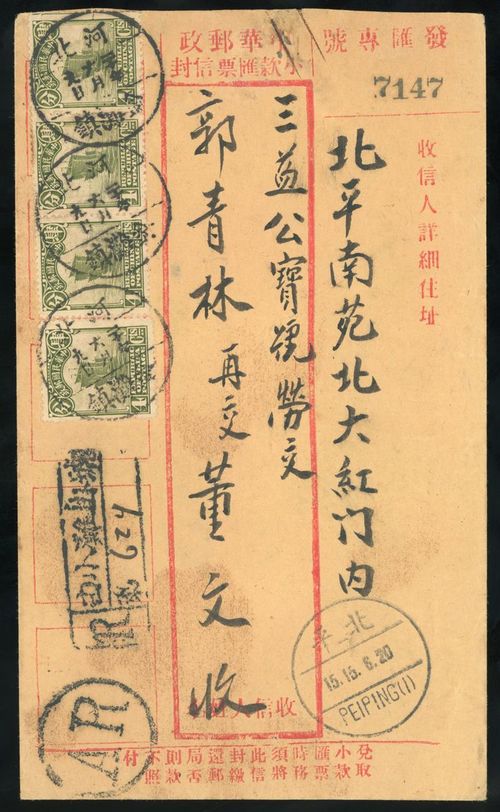 發匯專號
7147
中華郵政
小款匯票信封
收信人詳細住址
北平南苑北大紅门内
三益公寶號勞交
郭青林再交董文收
收信人
兌取小款匯票時務須將此信封繳還郵局否則款不照付
河北
河北
河北
R
629
AR
北平
15.15.6.20
PEIPING(1)